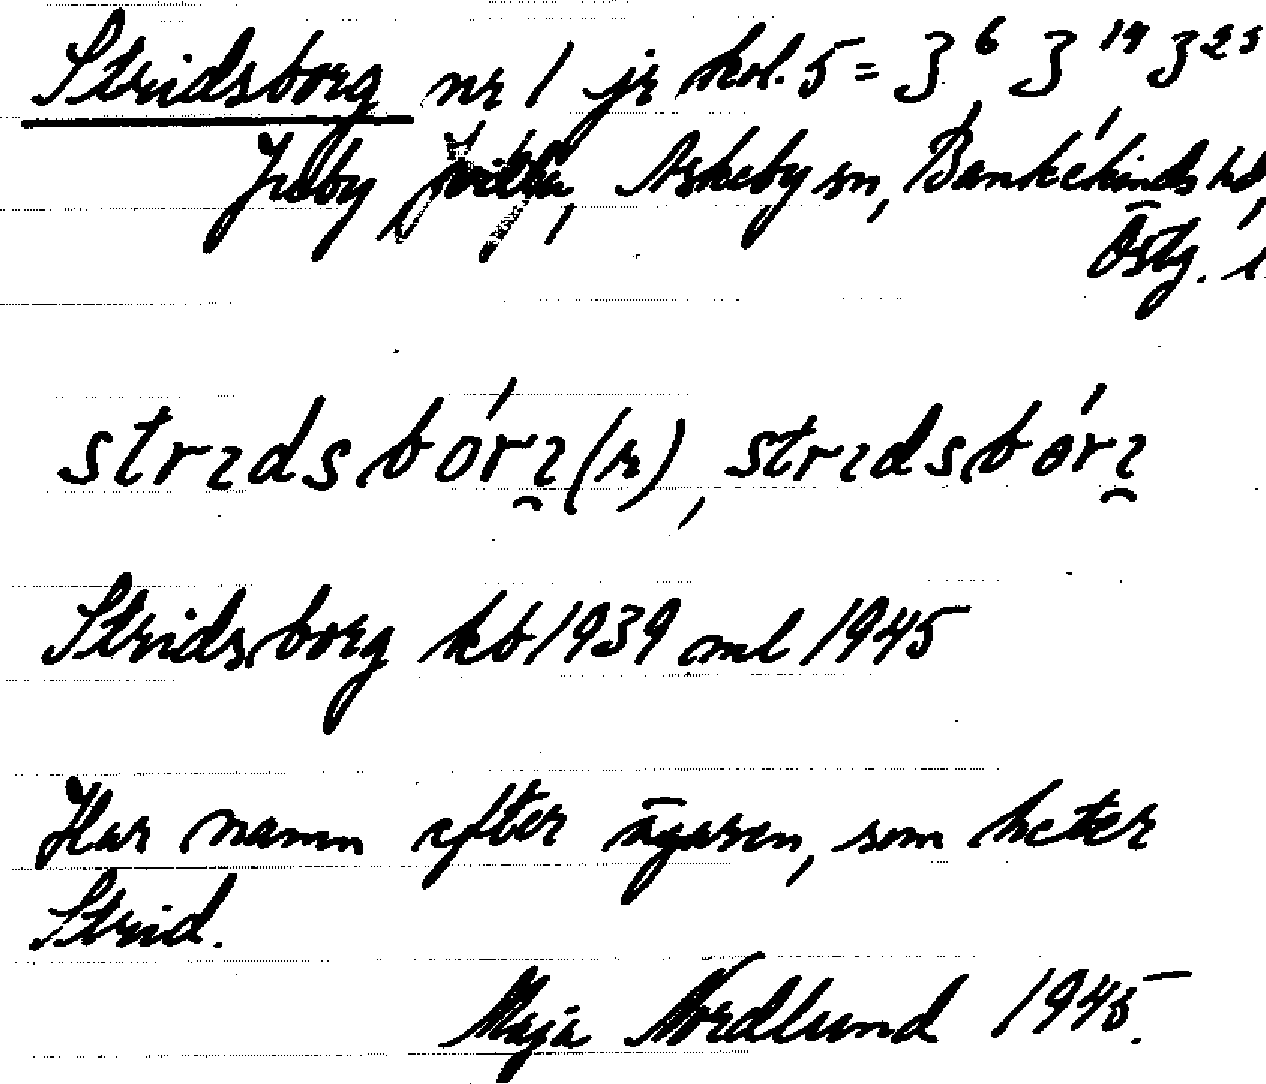 Stridsborg nr 1 jr kol. 5 = 3⁶ 3¹⁹ 3²⁵
Askeby sn, Bankekinds hd,
Östg. l.
stridsbórı̯(n), stridsbórı̯
Stridsborg kb 1939 ml 1945
Har namn efter ägaren, som heter
Strid.
Maja Nordlund 1945.